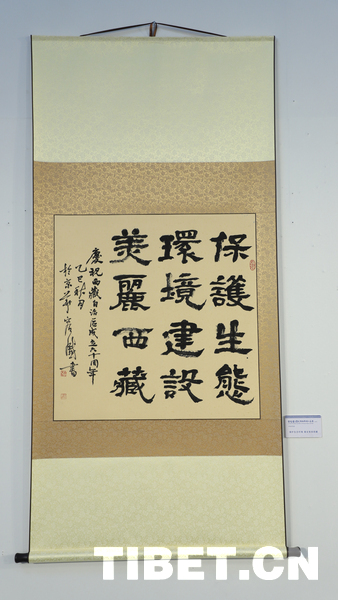 保護生態
環境建設
美麗西藏
慶祝西藏自治區成立六十周年
乙巳秋月
於京華書
TIBET.CN